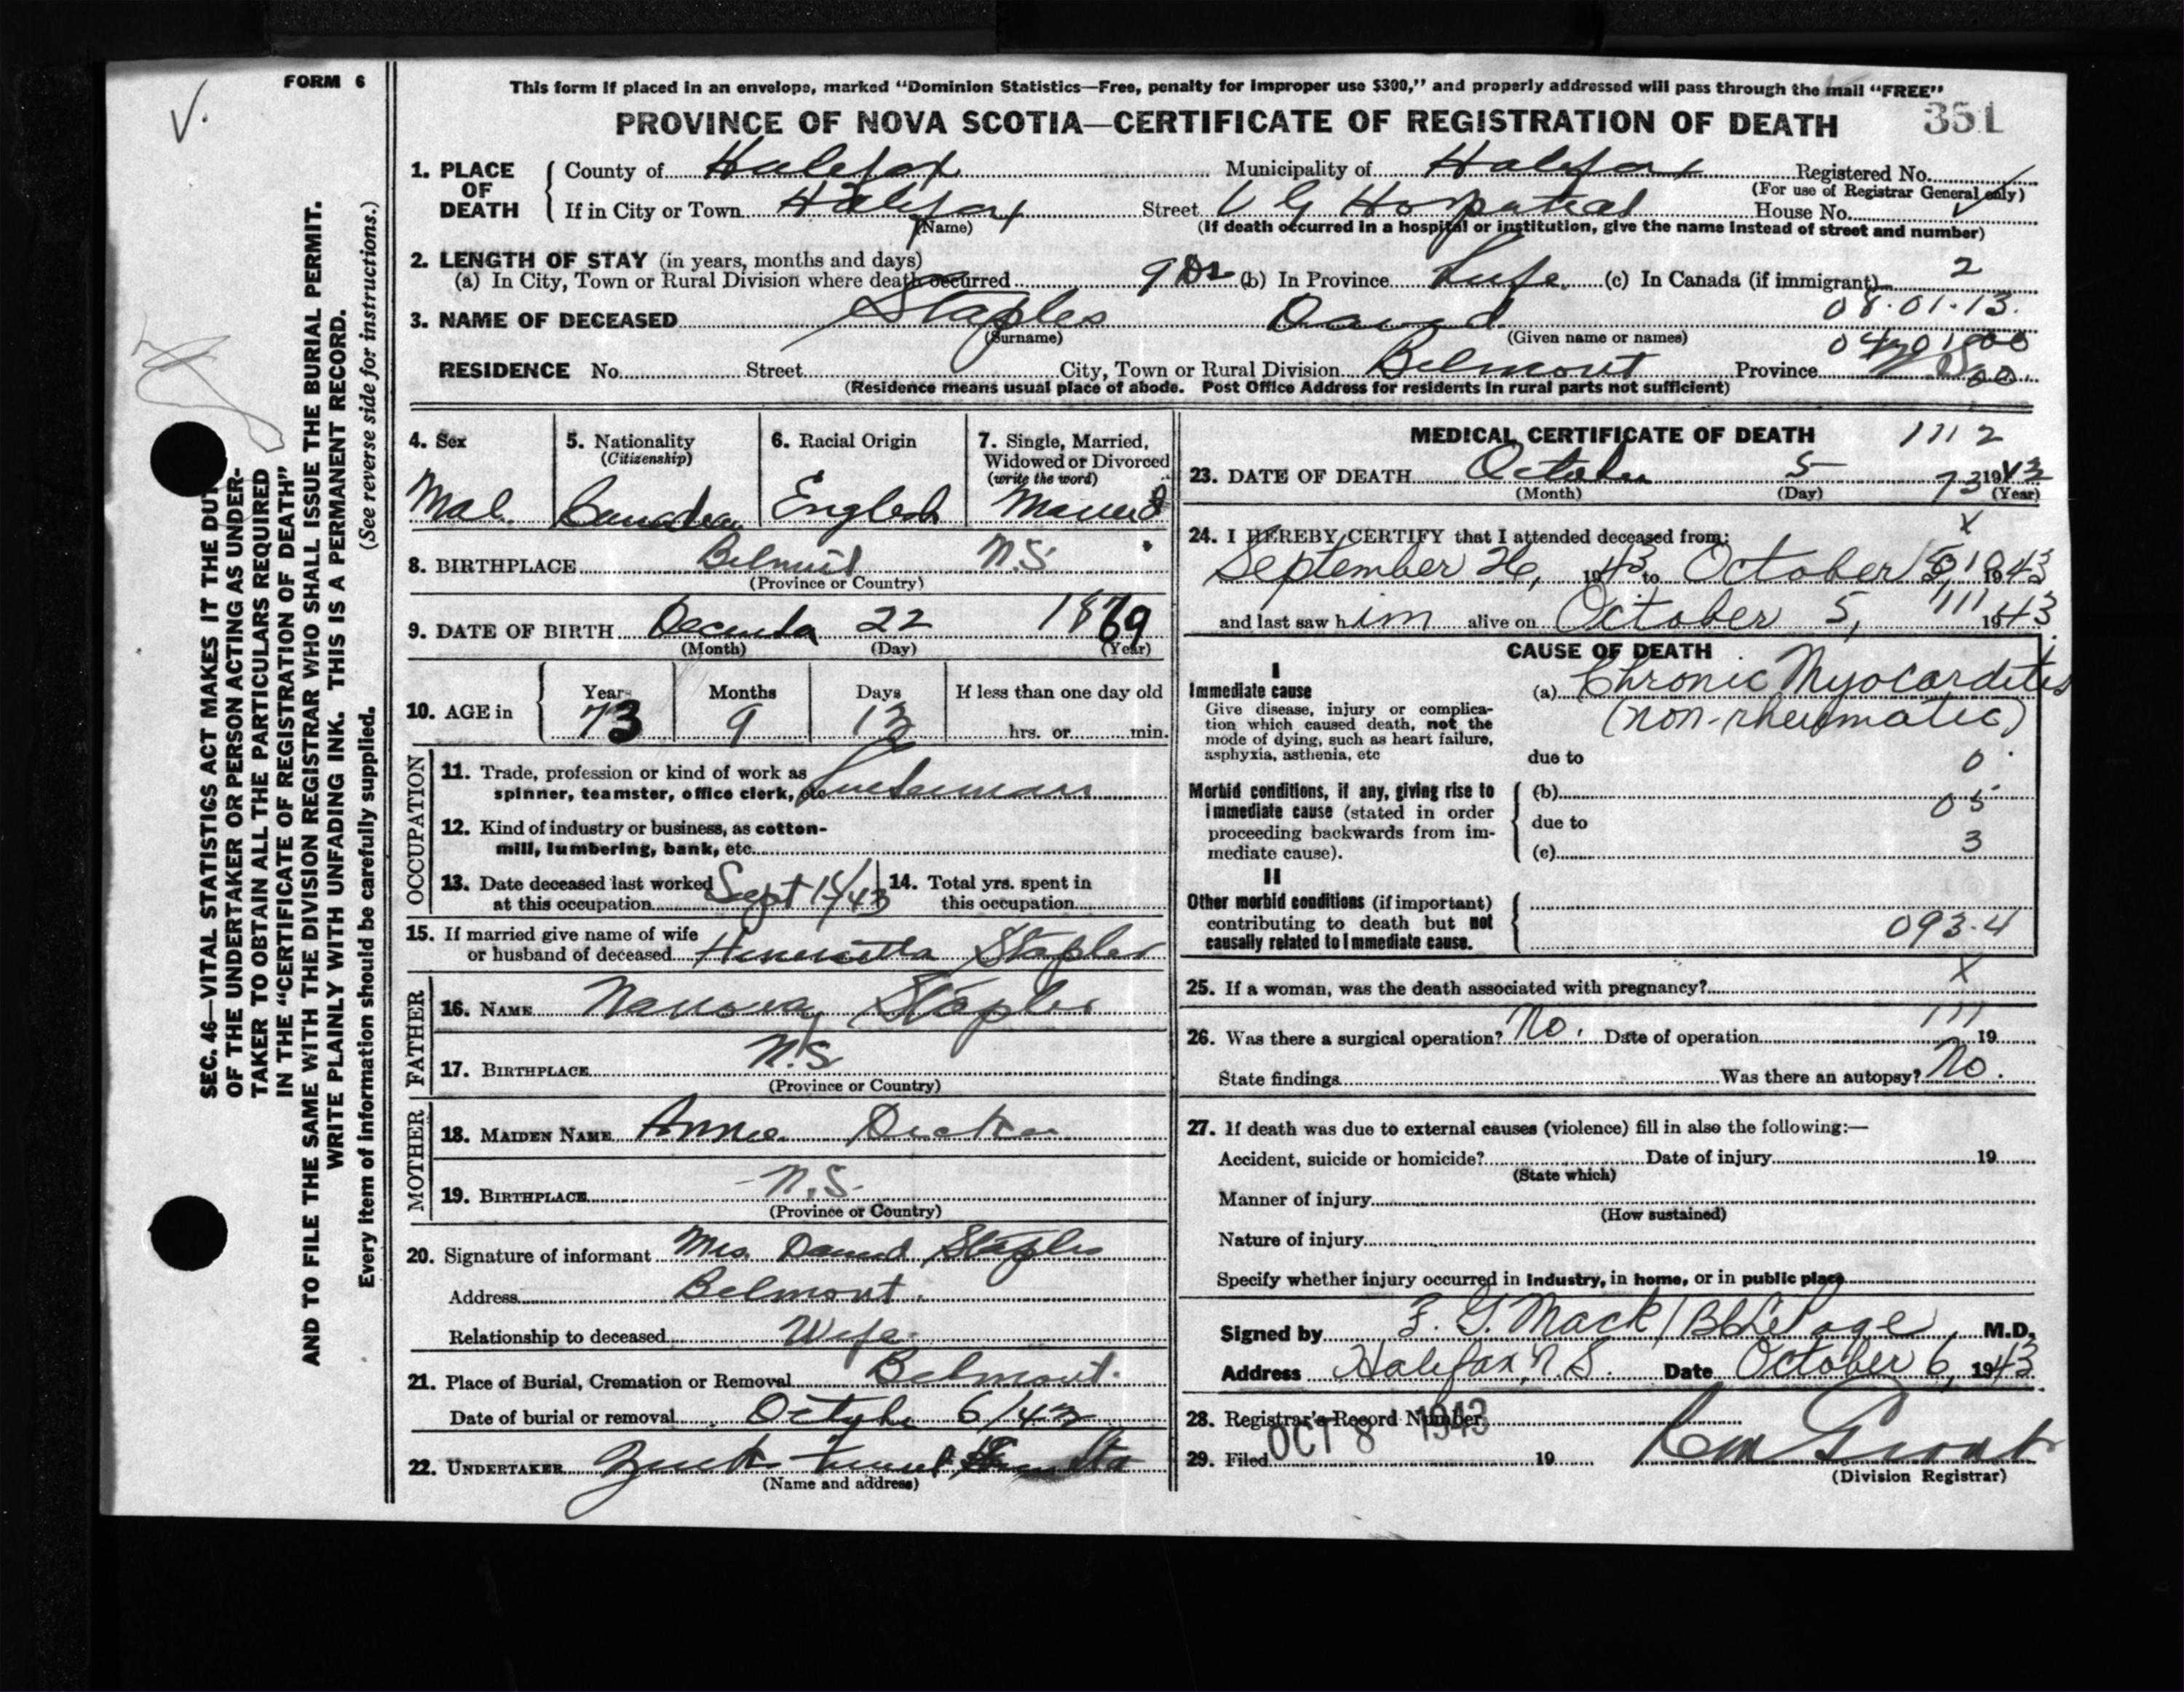 FORM 6
V.
This form if placed in an envelope, marked "Dominion Statistics—Free, penalty for improper use $300," and properly addressed will pass through the mail "FREE"
PROVINCE OF NOVA SCOTIA—CERTIFICATE OF REGISTRATION OF DEATH 351
1. PLACE OF DEATH County of Halifax Municipality of Halifax Registered No.
(For use of Registrar General only)
If in City or Town Halifax Street V G Hospital House No.
(Name) (If death occurred in a hospital or institution, give the name instead of street and number)
2. LENGTH OF STAY (in years, months and days)
(a) In City, Town or Rural Division where death occurred 9 (b) In Province Life (c) In Canada (if immigrant) 2
08.01.13.
3. NAME OF DECEASED Staples David
(Surname) (Given name or names)
RESIDENCE No. Street City, Town or Rural Division Belmont Province
(Residence means usual place of abode. Post Office Address for residents in rural parts not sufficient)
4. Sex 5. Nationality (Citizenship) 6. Racial Origin 7. Single, Married, Widowed or Divorced (write the word)
Mal. Canadian English Married
8. BIRTHPLACE Belmont N.S.
(Province or Country)
9. DATE OF BIRTH December 22 1869
(Month) (Day) (Year)
10. AGE in Years Months Days If less than one day old
73 9 13 hrs. or min.
OCCUPATION
11. Trade, profession or kind of work as spinner, teamster, office clerk, etc.
12. Kind of industry or business, as cotton-mill, lumbering, bank, etc.
13. Date deceased last worked at this occupation Sept 15/43 14. Total yrs. spent in this occupation
15. If married give name of wife or husband of deceased Henrietta Staples
FATHER
16. NAME Staples
17. BIRTHPLACE N.S.
(Province or Country)
MOTHER
18. MAIDEN NAME Annie
19. BIRTHPLACE N.S.
(Province or Country)
20. Signature of informant Mrs. David Staples
Address Belmont.
Relationship to deceased Wife.
21. Place of Burial, Cremation or Removal Belmont.
Date of burial or removal 6/43
22. UNDERTAKER
(Name and address)
MEDICAL CERTIFICATE OF DEATH 1112
23. DATE OF DEATH October 5 1943
(Month) (Day) 73 (Year)
24. I HEREBY CERTIFY that I attended deceased from: X
September 26, 1943 to October 5, 1943
and last saw him alive on October 5, 1943.
111
CAUSE OF DEATH
I
Immediate cause
Give disease, injury or complication which caused death, not the mode of dying, such as heart failure, asphyxia, asthenia, etc
(a) Chronic Myocarditis
(non-rheumatic)
due to 0
Morbid conditions, if any, giving rise to immediate cause (stated in order proceeding backwards from immediate cause).
(b) 05
due to
(c) 3
II
Other morbid conditions (if important) contributing to death but not causally related to immediate cause.
093.4
X
25. If a woman, was the death associated with pregnancy?
111
26. Was there a surgical operation? No. Date of operation 19
State findings Was there an autopsy? No.
27. If death was due to external causes (violence) fill in also the following:—
Accident, suicide or homicide? Date of injury 19
(State which)
Manner of injury
(How sustained)
Nature of injury
Specify whether injury occurred in industry, in home, or in public place
Signed by F. G. Mack / M.D.
Address Halifax, N.S. Date October 6, 1943
28. Registrar's Record Number
29. Filed OCT 8 1943 19
(Division Registrar)
SEC. 46—VITAL STATISTICS ACT MAKES IT THE DUTY
OF THE UNDERTAKER OR PERSON ACTING AS UNDER-
TAKER TO OBTAIN ALL THE PARTICULARS REQUIRED
IN THE "CERTIFICATE OF REGISTRATION OF DEATH"
AND TO FILE THE SAME WITH THE DIVISION REGISTRAR WHO SHALL ISSUE THE BURIAL PERMIT.
WRITE PLAINLY WITH UNFADING INK. THIS IS A PERMANENT RECORD.
Every item of information should be carefully supplied. (See reverse side for instructions.)